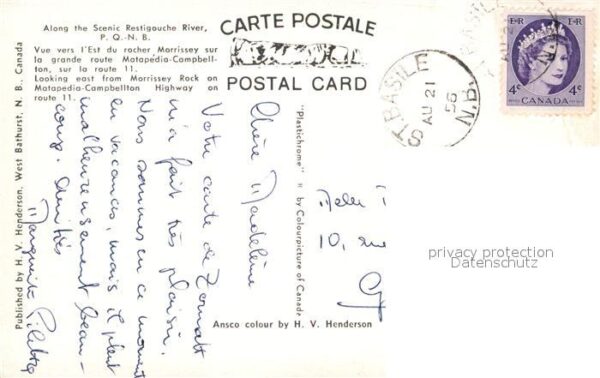 Along the Scenic Restigouche River,
P. Q.-N. B.
Vue vers l'Est du rocher Morrissey sur
la grande route Matapedia-Campbell-
ton, sur la route 11.
Looking east from Morrissey Rock on
Matapedia-Campbellton Highway on
route 11.
CARTE POSTALE
POSTAL CARD
ST. BASILE
AU 21
N.B.
E R
E R
4c
4c
CANADA
Published by H. V. Henderson, West Bathurst, N. B., Canada
"Plastichrome" ® by Colourpicture of Canada
Ansco colour by H. V. Henderson
Chère Madeleine
Votre carte de Zermatt
m'a fait très plaisir.
Nous sommes en ce moment
en vacances, mais il pleut
malheureusement beau-
coup. Amitiés
Marguerite
10, rue
privacy protection
Datenschutz